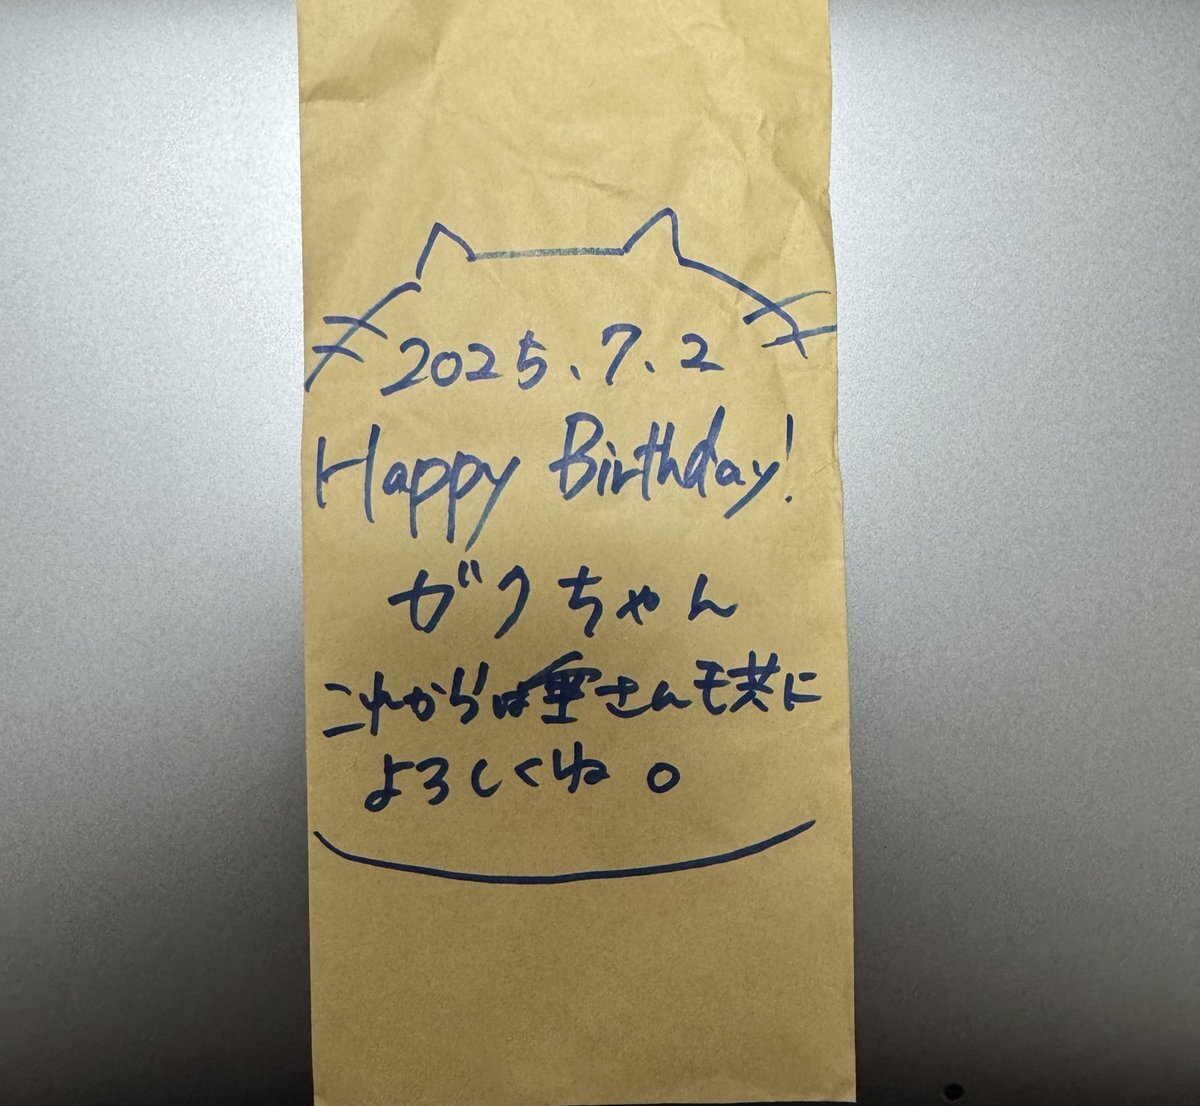 2025.7.2
Happy Birthday!
ガクちゃん
これからは さんモ共に
よろしくね。